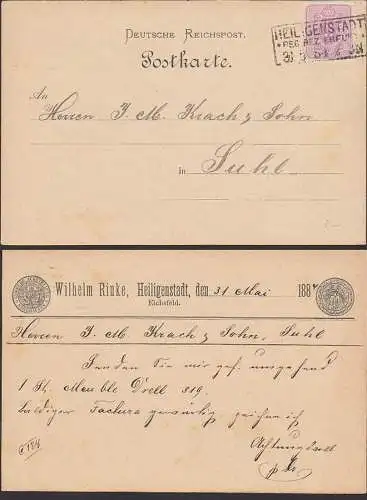 DEUTSCHE REICHSPOST.
Postkarte.
HEILIGENSTADT
REG. BEZ. ERFURT
An
Herren J. M. Krach & Sohn
in Suhl
Wilhelm Rinke, Heiligenstadt, den 31 Mai 188
Eichsfeld.
Herren J. M. Krach & Sohn, Suhl
Senden Sie mir gef. umgehend
1 St. Meuble Drell 319.
baldiger Factura gewärtig zeichne ich
Achtungsvoll